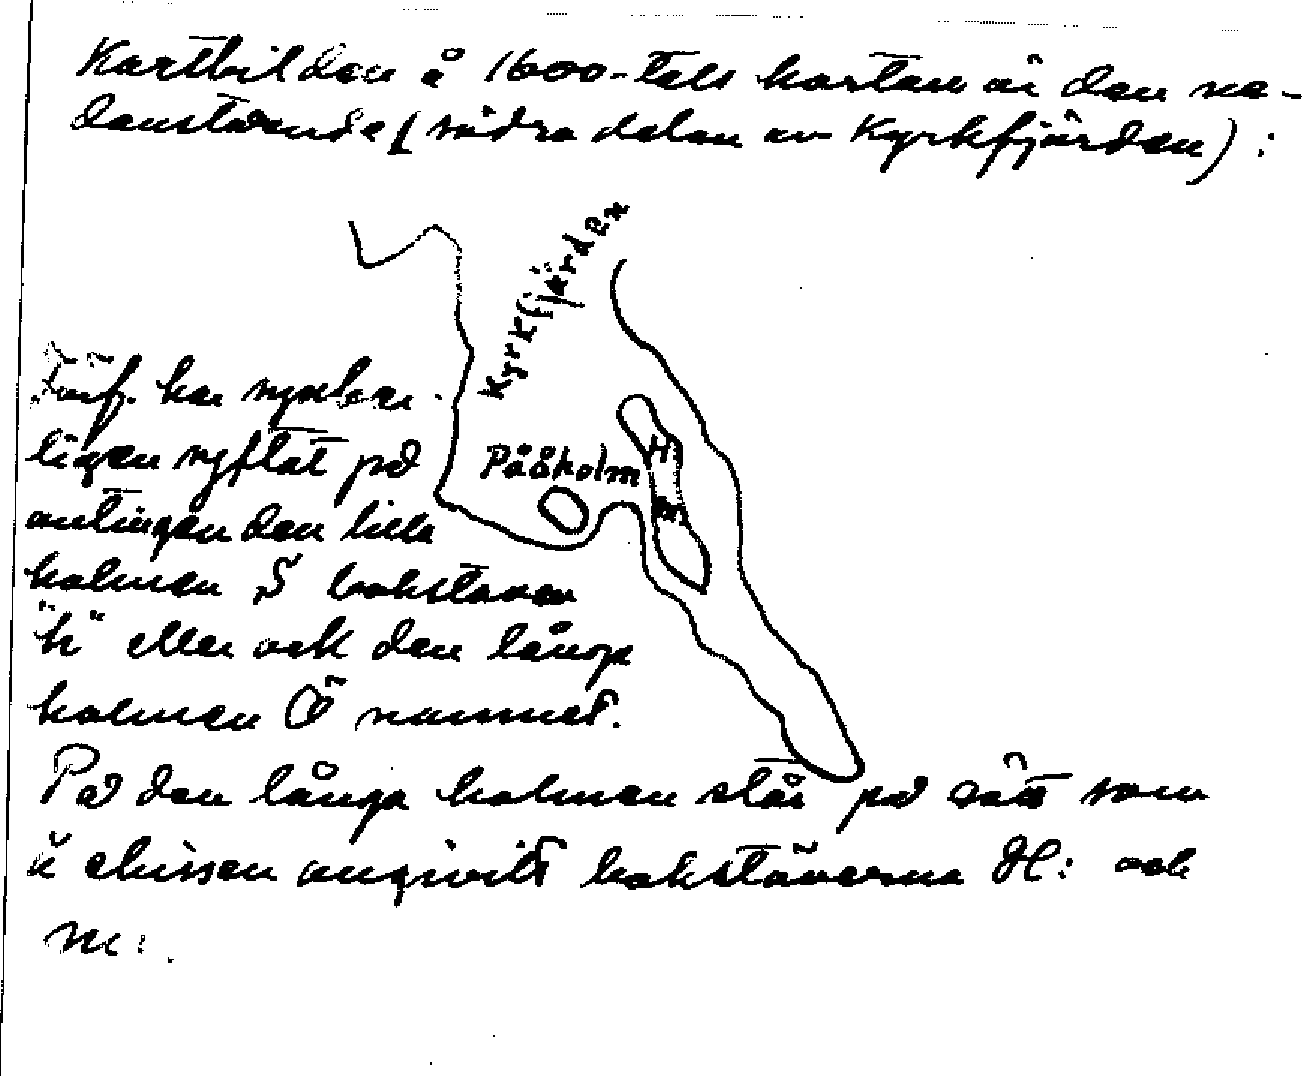 Kartbilden å 1600-tals kartan är den ne-
danstående (södra delen av Kyrkfjärden):
Kyrkfjärden
Förf. har uppenbar-
ligen syftat på
Pååholm
H:
m
antingen den lilla
holmen S bokstaven
"h" eller ock den långa
holmen Ö namnet.
På den långa holmen står på sätt som
å skissen angivits bokstäverna H: och
m:.